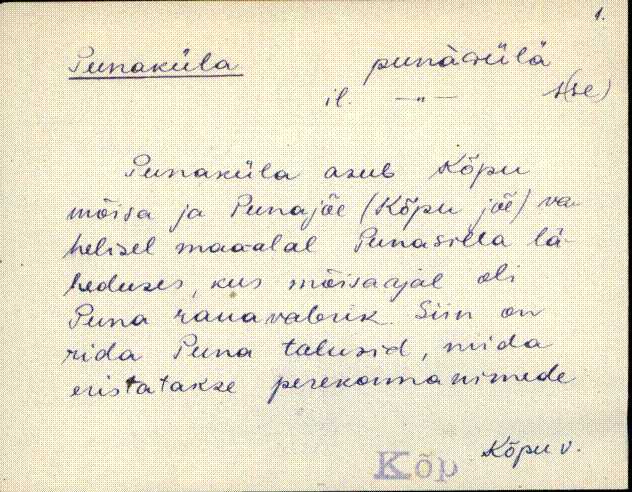 1.
Punaküla punàɢülä
il. —"— s(se)
Punaküla asub Kõpu
mõisa ja Punajõe (Kõpu jõe) va-
helisel maaalal Punasilla lä-
heduses, kus mõisaajal oli
Puna rauavabrik. Siin on
rida Puna talusid, mida
eristatakse perekonnanimede
Kõp Kõpu v.